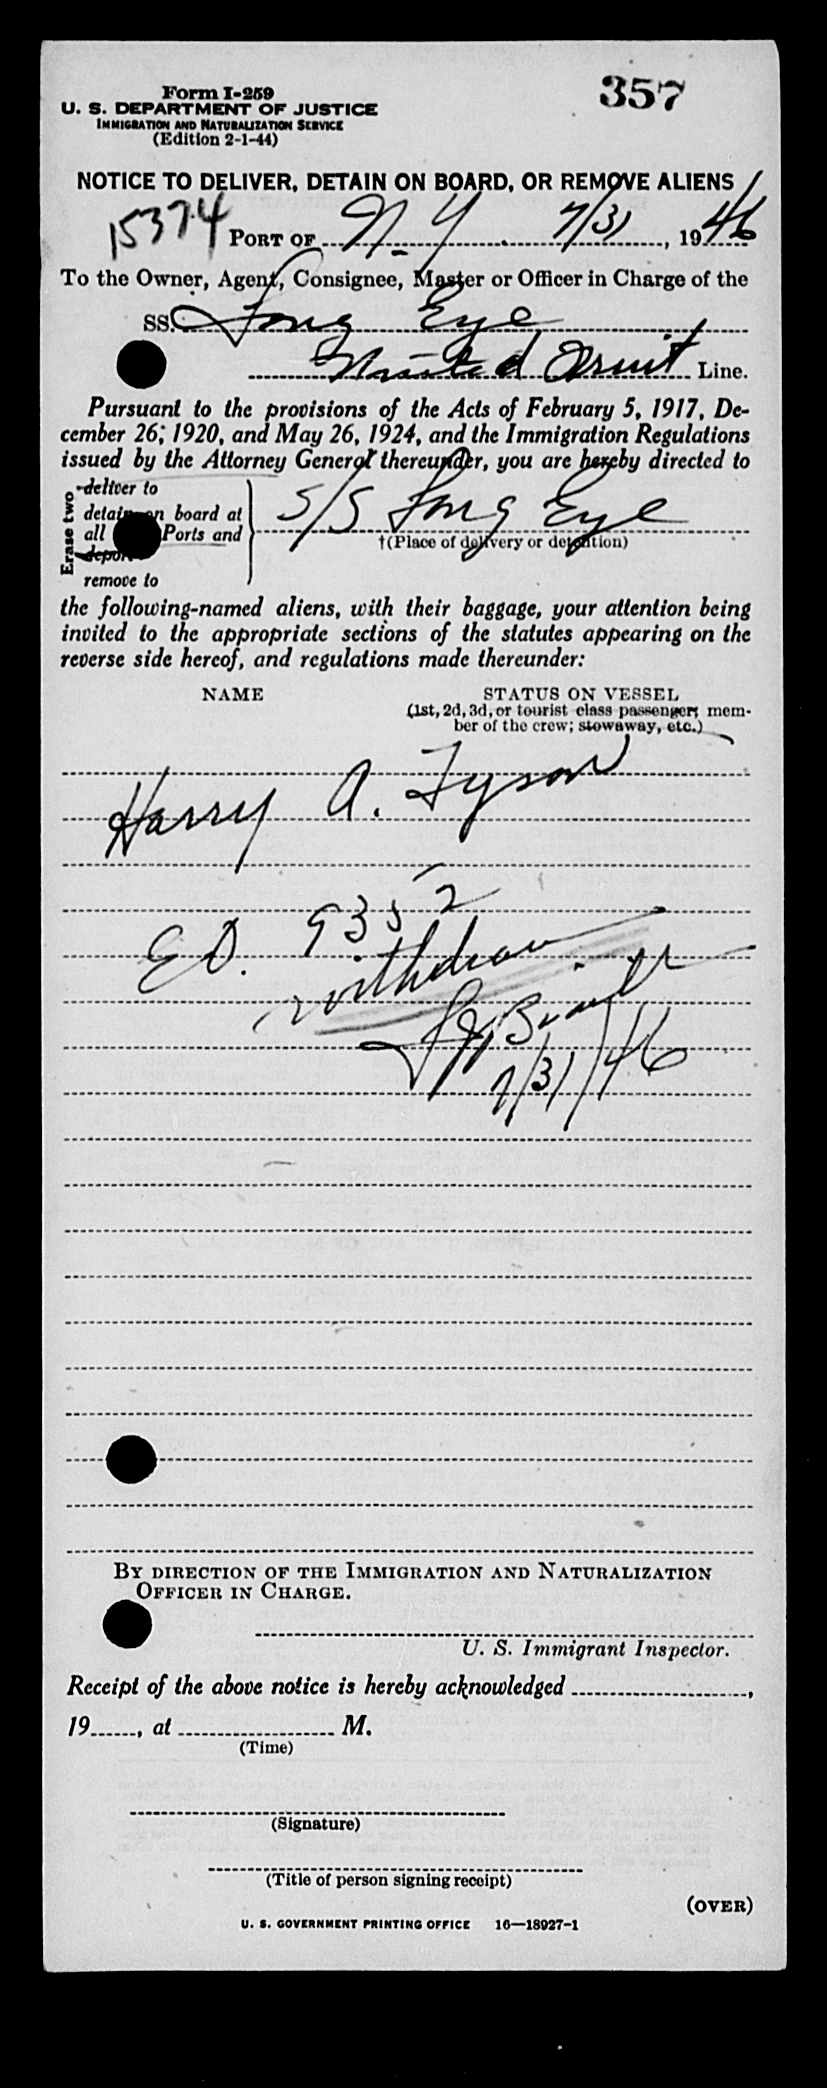 357
Form I-259
U. S. DEPARTMENT OF JUSTICE
IMMIGRATION AND NATURALIZATION SERVICE
(Edition 2-1-44)
NOTICE TO DELIVER, DETAIN ON BOARD, OR REMOVE ALIENS
15374 PORT OF N.Y. 7/31, 1946
To the Owner, Agent, Consignee, Master or Officer in Charge of the
SS. Long Eye
United Fruit Line.
Pursuant to the provisions of the Acts of February 5, 1917, De-
cember 26, 1920, and May 26, 1924, and the Immigration Regulations
issued by the Attorney General thereunder, you are hereby directed to
Erase two
deliver to
detain on board at
all Ports and
deport
remove to
S/S Long Eye
†(Place of delivery or detention)
the following-named aliens, with their baggage, your attention being
invited to the appropriate sections of the statutes appearing on the
reverse side hereof, and regulations made thereunder:
NAME STATUS ON VESSEL
(1st, 2d, 3d, or tourist class passenger; mem-
ber of the crew; stowaway, etc.)
Harry A. Tyson
EO. 9352
withdrawn
7/31/46
BY DIRECTION OF THE IMMIGRATION AND NATURALIZATION
OFFICER IN CHARGE.
U. S. Immigrant Inspector.
Receipt of the above notice is hereby acknowledged ,
19 , at M.
(Time)
(Signature)
(Title of person signing receipt)
(OVER)
U. S. GOVERNMENT PRINTING OFFICE 16—18927-1